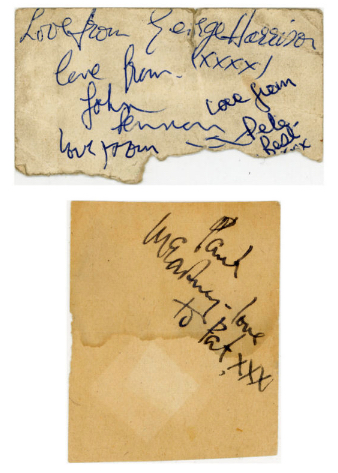 Love from George Harrison
(XXXX)
love from
John
Lennon
love from
Love from
Pete
Best xxx
Paul
McCartney - love
to Pat, XXX